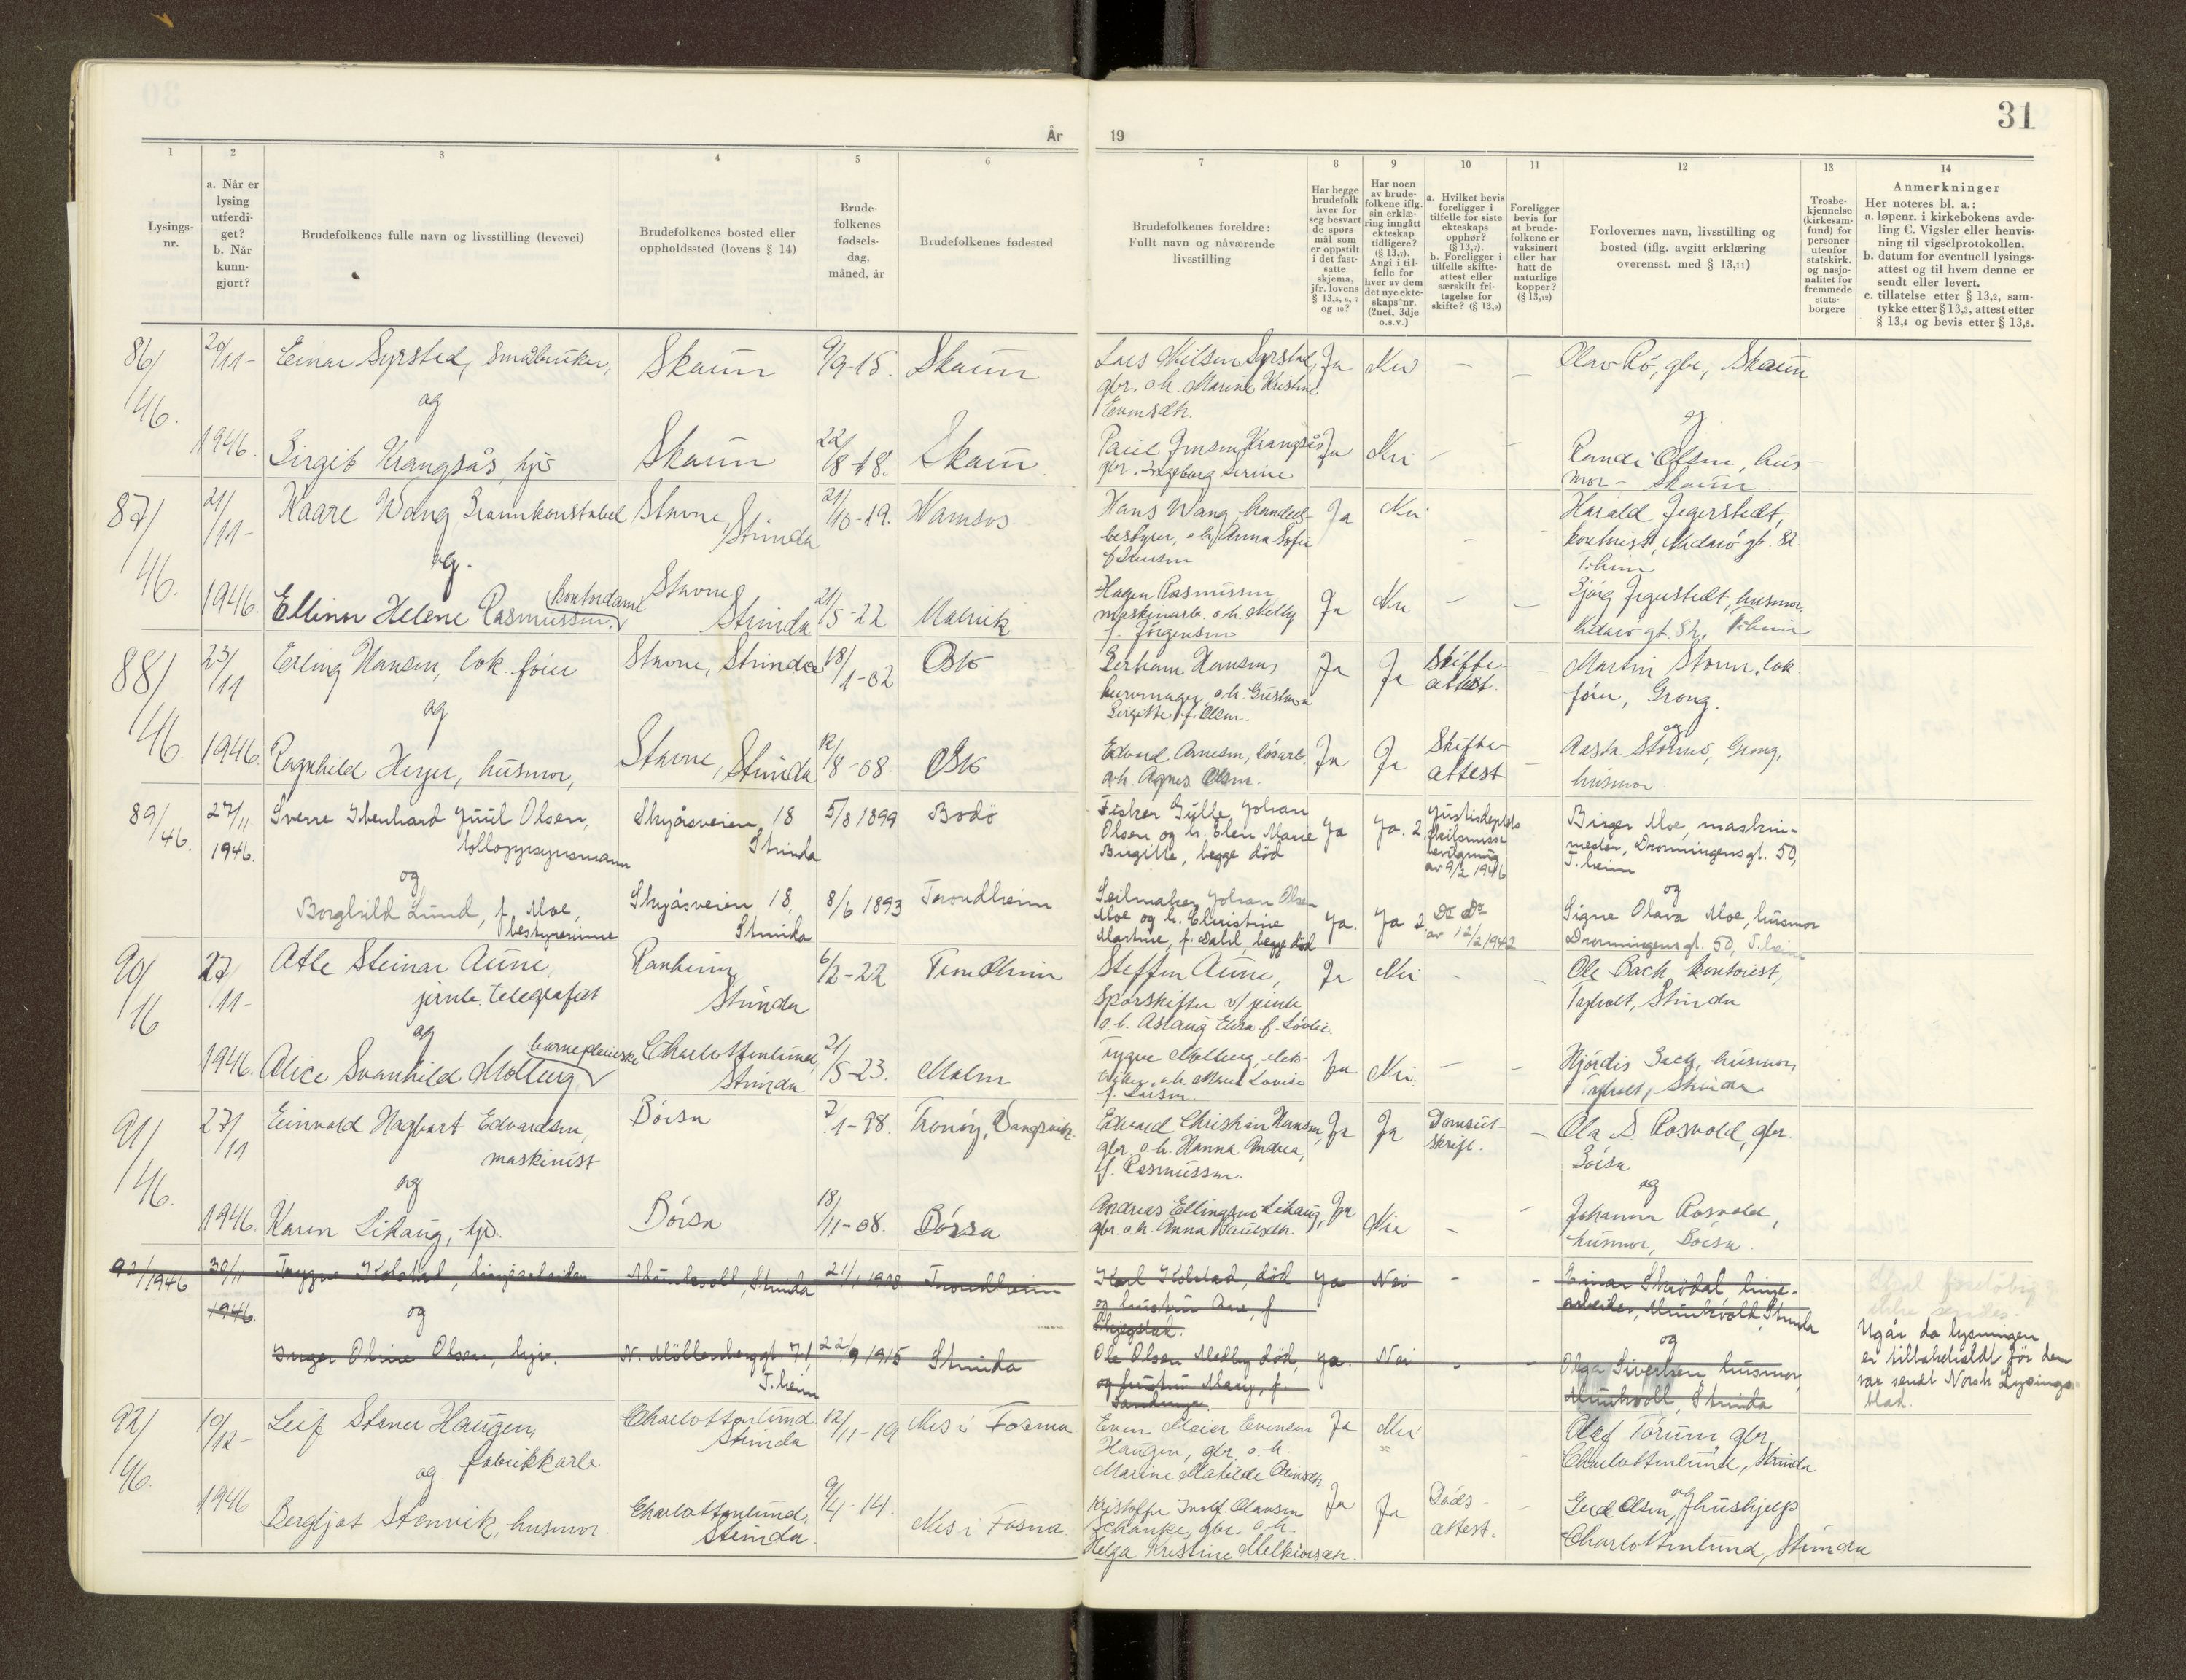 31
År 19
1
2
3
4
5
6
7
8
9
10
11
12
13
14
Lysings-
nr.
a. Når er
lysing
utferdi-
get?
b. Når
kunn-
gjort?
Brudefolkenes fulle navn og livsstilling (levevei)
Brudefolkenes bosted eller
oppholdssted (lovens § 14)
Brude-
folkenes
fødsels-
dag,
måned, år
Brudefolkenes fødested
Brudefolkenes foreldre:
Fullt navn og nåværende
livsstilling
Har begge
brudefolk
hver for
seg besvart
de spørs
mål som
er oppstilt
i det fast-
satte
skjema,
jfr. lovens
§ 13,5, 6, 7
og 10?
Har noen
av brude-
folkene iflg.
sin erklæ-
ring inngått
ekteskap
tidligere?
(§ 13,7).
Angi i til-
felle for
hver av dem
det nye ekte-
skaps nr.
(2net, 3dje
o.s.v.)
a. Hvilket bevis
foreligger i
tilfelle for siste
ekteskaps
opphør?
(§ 13,7).
b. Foreligger i
tilfelle skifte-
attest eller
særskilt fri-
tagelse for
skifte? (§ 13,9)
Foreligger
bevis for
at brude-
folkene er
vaksinert
eller har
hatt de
naturlige
kopper?
(§ 13,12)
Forlovernes navn, livsstilling og
bosted (iflg. avgitt erklæring
overensst. med § 13,11)
Trosbe-
kjennelse
(kirkesam-
fund) for
personer
utenfor
statskirk.
og nasjo-
nalitet for
fremmede
stats-
borgere
Anmerkninger
Her noteres bl. a.:
a. løpenr. i kirkebokens avde-
ling C. Vigsler eller henvis-
ning til vigselprotokollen.
b. datum for eventuell lysings-
attest og til hvem denne er
sendt eller levert.
c. tillatelse etter § 13,2, sam-
tykke etter § 13,3, attest etter
§ 13,4 og bevis etter § 13,8.
86/46. 20/11- 1946.
Einar Syrstad, Småbruker,
Skaun 9/9-15. Skaun
Lars Nilsen Syrstad,
gbr. o.h. Marine Kristine
Ja Nei – –
Olav Rø, gbr, Skaun
og
Birgit Krangsås, hjv
Skaun 22/8-18. Skaun
Paul Jensen Krangsås
gbr. Ingeborg Serine
Ja Nei – –
og
Randi Olsen, hus-
mor - Skaun
87/46. 21/11- 1946.
Kaare Wang Brannkonstabel
Stavne, Strinda
21/10-19. Namsos
Hans Wang, handels-
bestyrer, o.h. Anna Sofie
f. Jensen
Ja Nei –
Harald Jegerstedt,
kontorist, Nidarö gt. 82
T.heim
og.
Ellinor Helene Rasmussen. kontordame
Stavne, Strinda
21/5-22 Malvik
Hagen Rasmussen
maskinarb. o.h. Nelly
f. Jørgensen
Ja Nei – –
Bjørg Jegerstedt, husmor,
Nidarö gt. 82, T.heim
88/46 23/11 1946.
Erling Hansen, lok. fører
Stavne, Strinda 18/1-02 Oslo
Hansen,
o.h. Gustava
Birgitte f. Olsen.
Ja Ja Skifte-
attest. –
Martin Storm, lok
fører, Grong.
og
Ragnhild Heyer, husmor,
Stavne, Strinda 12/8-08. Oslo
Edvard Arnesen, løsarb.
o.h. Agnes Olsen.
Ja Ja Skifte-
attest –
og
Aasta Storm, Grong,
husmor.
89/46. 27/11 1946.
Sverre Ibenhard Juul Olsen,
tolloppsynsmann
Skyåsveien 18
Strinda
5/8 1899 Bodö
Fisker Gulle Johan
Olsen og h. Elen Marie
Birgitte, begge död
Ja Ja. 2
Justisdeptets
skilsmisse
bevilgning
av 9/2 1946
Birger Moe, maskin-
mester, Dronningensgt. 50,
T.heim
og
Borghild Lund, f. Moe,
bestyrerinne
Skyåsveien 18,
Strinda
8/6 1893 Trondheim
Seilmaker Johan Olsen
Moe og h. Christine
Martine, f. Dahl, begge död
Ja. Ja 2 Do Do
av 12/2 1942
og
Signe Olava Moe, husmor
Dronningensgt. 50, T.heim
90/46 27/11- 1946.
Atle Steinar Aune,
jernb. telegrafist
Ranheim,
Strinda
6/2-22 Trondheim
Steffen Aune,
Sporskifter v/ jernb
o.h. Aslaug Elisa f. Løvlie.
Ja Nei – –
Ole Bach, kontorist,
Tyholt, Strinda
og
Alice Svanhild Molberg barnepleierske
Charlottenlund,
Strinda
21/5-23. Malm
Trygve Molberg, elek-
triker o.h. Maria Lovise
f. Larsen.
Ja Nei. – –
Hjördis Bach, husmor,
Tyholt, Strinda
91/46. 27/11 1946.
Einvald Hagbart Edvardsen,
maskinist
Börsa 7/1-98.
Edvard Christian Hansen,
gbr o.h. Hanna Andrea,
f. Rasmussen.
Ja Ja Domsut-
skrift. –
Ola S. Rosvold, gbr.
Börsa
og
Karen Lihaug, hjv.
Börsa 18/11-08. Börsa
Andreas Ellingsen Lihaug,
gbr o.h. Anna Paulsdtr.
Ja Nei – –
og
Johanna Rosvold,
husmor, Börsa.
92/1946 30/11 1946.
Trygve Kolstad, linjearbeider
Munkvoll, Strinda 21/1 1908 Trondheim
Karl Kolstad, död
og hustru Ane, f
Ja Nei – –
Einar Skrödal, linje-
arbeider, Munkvoll, Strinda
og
Inger Oline Olsen, hjv.
N. Möllenberggt. 71,
T.heim
22/9 1915 Strinda
Ole Olsen Medby död,
og hustru Mary, f
Ja. Nei – –
og
Olga Sivertsen, husmor,
Munkvoll, Strinda
Skal foreløbig
ikke sendes.
Utgår da lysningen
er tilbakekaldt för den
var sendt Norsk Lysings-
blad.
92/46. 10/12- 1946
Leif Stener Haugen,
fabrikkarb.
Charlottenlund
Strinda
12/11-19 Nes i Fosna
Even Meier Evensen
Haugen, gbr o.h.
Marine Matilde
Ja Nei –
Olaf Tørum, gbr,
Charlottenlund, Strinda
og
Bergljot Stenvik, husmor.
Charlottenlund,
Strinda.
9/4-14. Nes i Fosna.
Kristoffer Invald Olausen
Schanke, gbr. o.h.
Helga Kristine Melkiorsen.
Ja Ja Døds-
attest. –
og
Gerd Olsen, hushjelp
Charlottenlund, Strinda